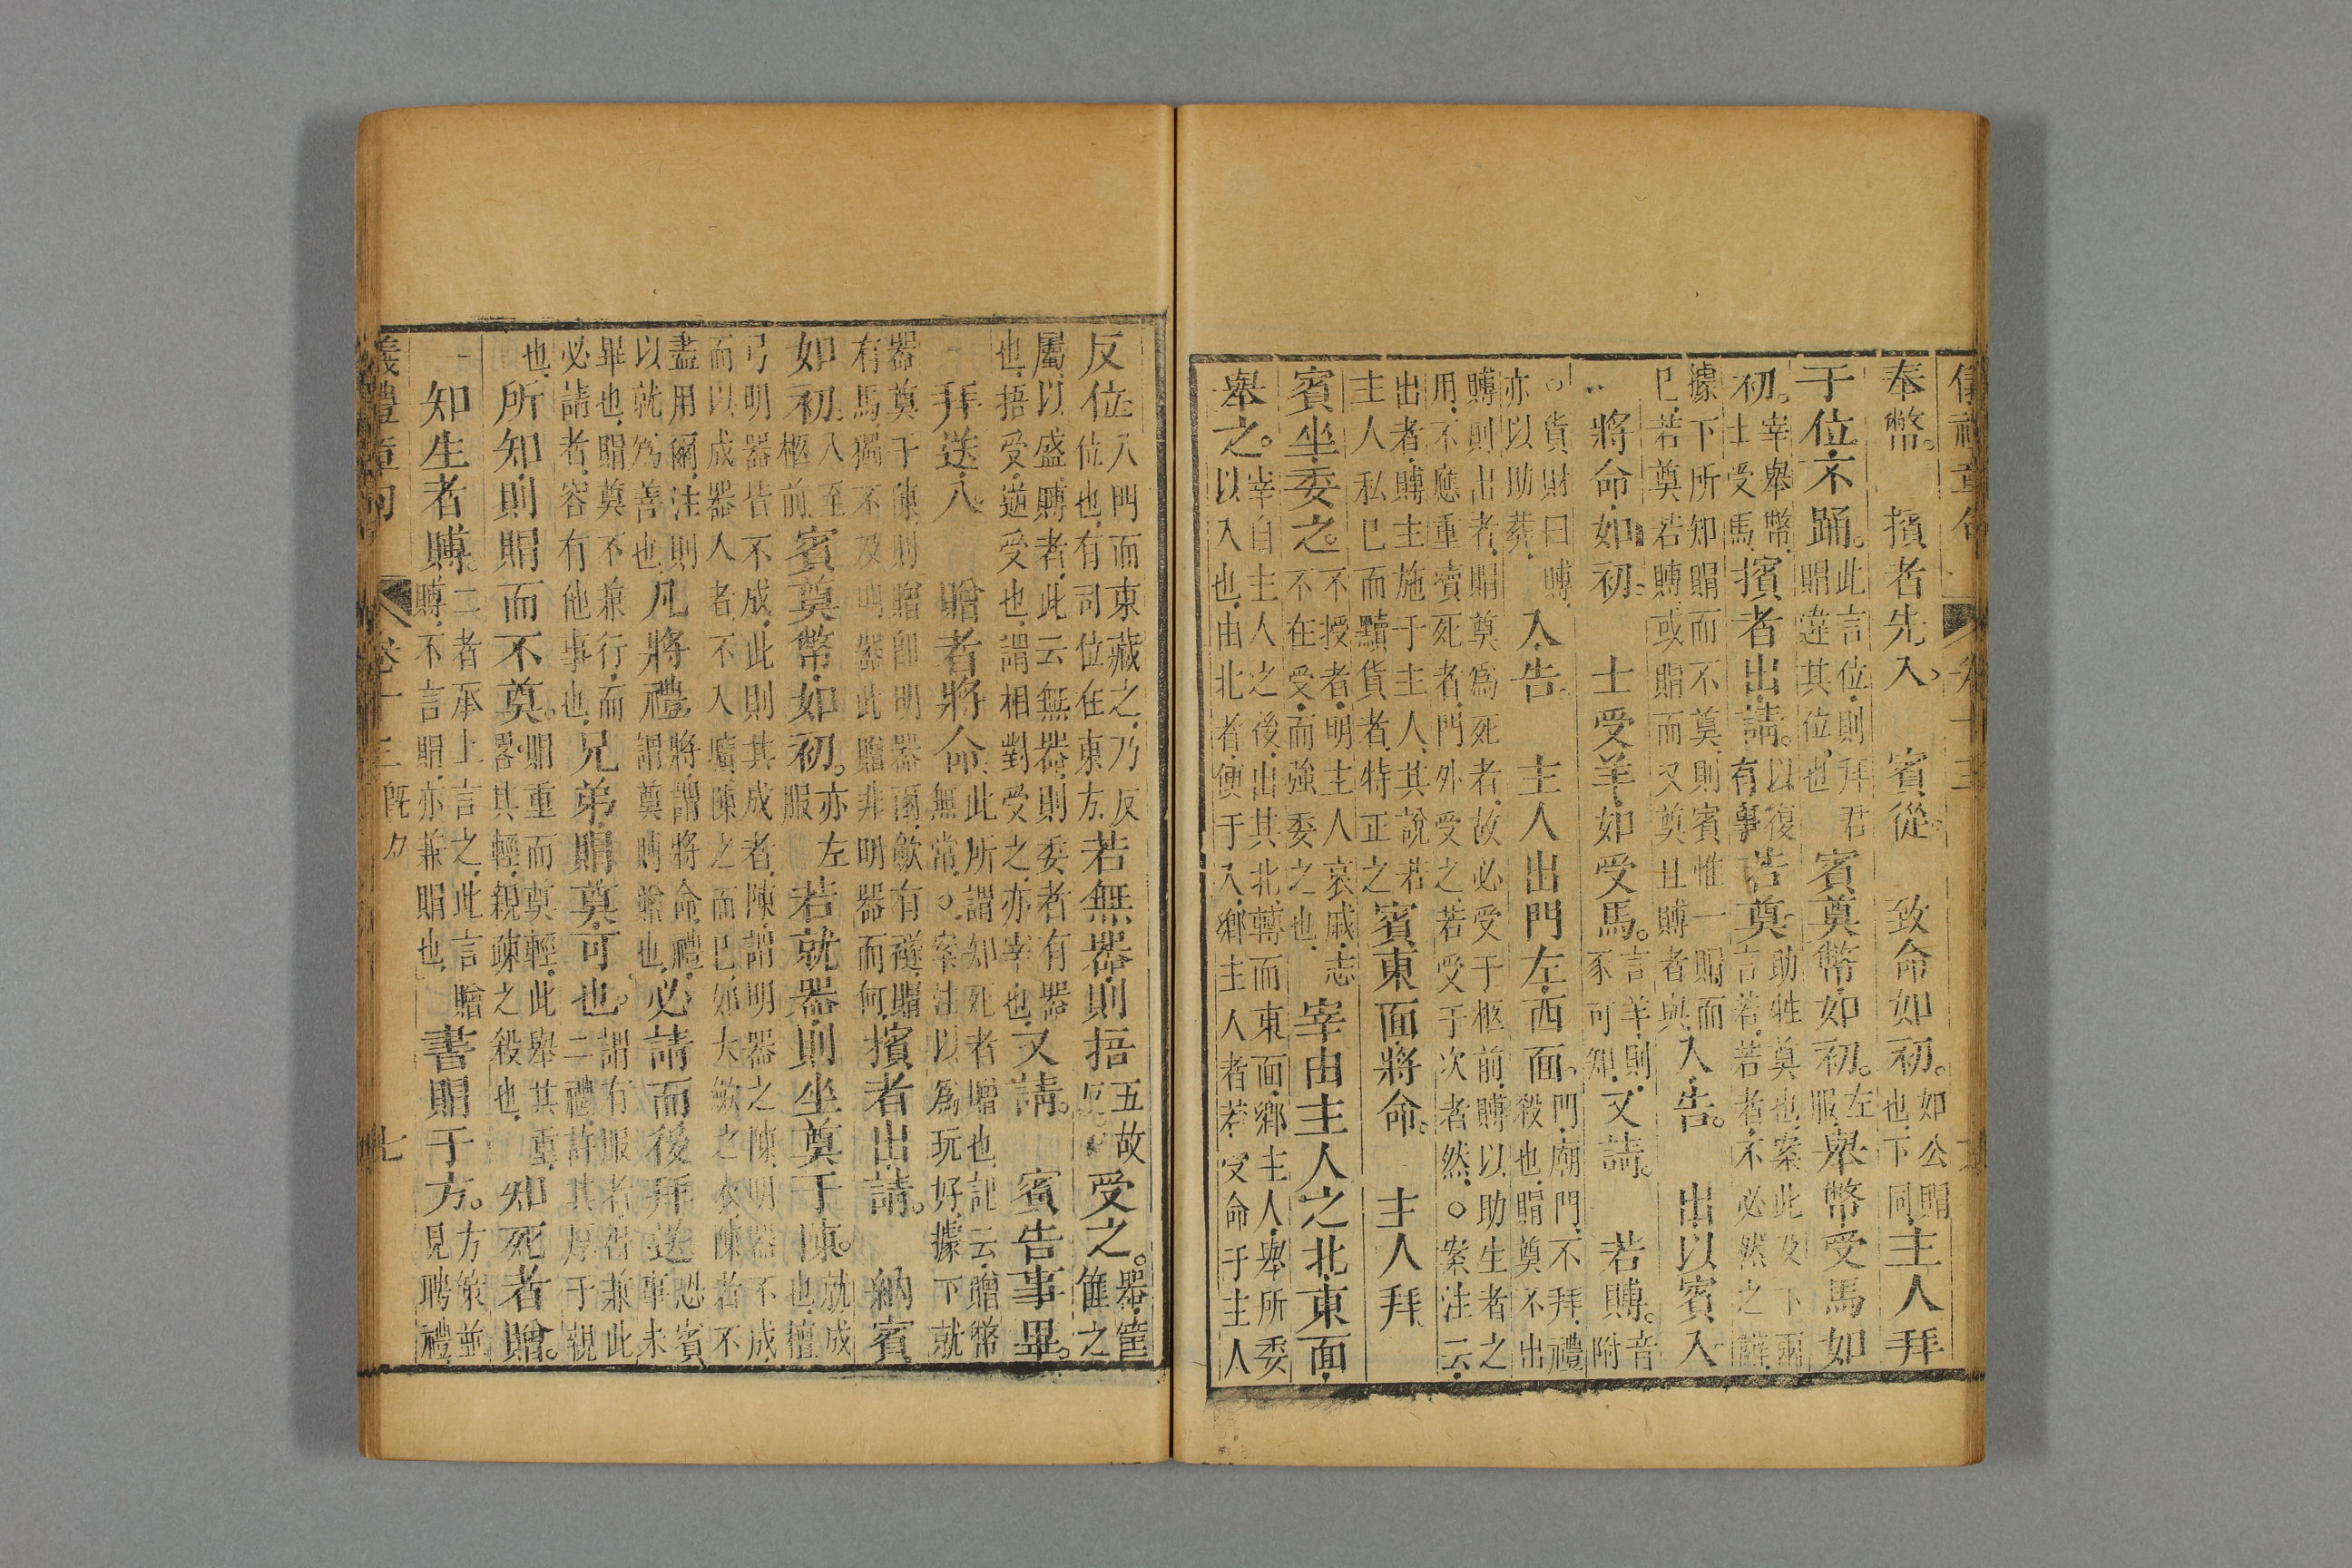 儀禮章句 卷十三
奉幣。擯者先入賓從致命如初。如公賵也下同主人拜
于位不踊。此言位則拜君賵違其位也賓奠幣如初。左服舉幣受馬如
初。宰舉幣士受馬擯者出請。以復有事若奠。助牲奠也案此及下兩言若若者不必然之辭
據下所知賵而不奠則賓惟一賵而已若奠若賻或賵而又奠且賻者與入告。出以賓入
將命如初。士受羊如受馬。言羊則豕可知又請。若賻。音附
○貨財曰賻亦以助葬入告。主人出門左西面。門廟門不拜禮殺也賵奠不出
賻則出者賵奠為死者故必受于柩前賻以助生者之用不應重賣死者門外受之若受于次者然。○案注云
出者賻主施于主人其說若主人私巳而黷貨者特正之賓東面將命。主人拜
賓坐委之。不授者明主人哀戚志不在受而強委之也宰由主人之北東面
舉之。宰自主人之後出其北轉而東面鄉主人舉所委以入也由北者便于入鄉主人者若受命于主人
反位入門而東藏之乃反位也有司位在東方若無器則捂五故反受之。器筐篚之
屬以盛賻者此云無器則委者有器也捂受逆受也謂相對受之亦宰也又請。賓告事畢。
拜送入。贈者將命此所謂知死者贈也記云贈幣無常。○案注以為玩好據下就
器奠于陳則贈卽明器爾歛有襚賵有馬獨不及明器此贈非明器而何擯者出請。納賓
如初入至柩前賓奠幣如初。亦左服若就器則坐奠于陳。就成也檀
弓明器皆不成此則其成者陳謂明器之陳明器不成而以成器人者不入壙陳之而已如大歛之衣陳者不
盡用爾注則以就為善也凡將禮將謂將命禮謂奠賻贈也必請而後拜送恐賓事未
畢也賵奠不兼行而必請者容有他事也兄弟賵奠可也。謂有服者得兼此二禮許其厚于親
也所知則賵而不奠。賵重而奠輕此舉其重畧其輕親疎之殺也知死者贈。
知生者賻。二者承上言之此言贈賻不言賵亦兼賵也書賵于方。方策並見聘禮
儀禮章句 卷十三 既夕 七